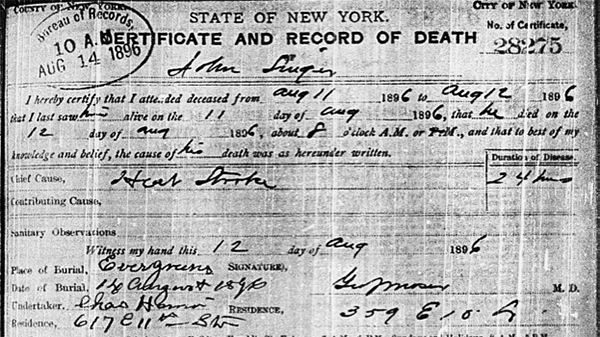 COUNTY OF NEW YORK.
STATE OF NEW YORK.
CITY OF NEW YORK.
No. of Certificate,
28275
CERTIFICATE AND RECORD OF DEATH
Bureau of Records
10 A.M.
AUG 14 1896
John Singer
I hereby certify that I attended deceased from Aug 11 1896 to Aug 12 1896
that I last saw him alive on the 11 day of aug 1896, that he died on the
12 day of aug 1896, about 8 o'clock A.M. or P.M., and that to best of my
knowledge and belief, the cause of his death was as hereunder written.
Duration of Disease
Chief Cause, Heat Stroke 24 hrs
Contributing Cause,
Sanitary Observations
Witness my hand this 12 day of Aug 1896
Place of Burial, Evergreens SIGNATURE), M. D.
Date of Burial, 14 August 1896
Undertaker. Chas RESIDENCE, 359 E 10
Residence, 617 E 11th St